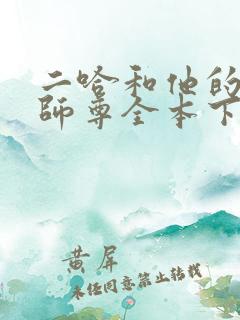 二哈和他的
師尊全本下
黄屏
未经同意禁止转载